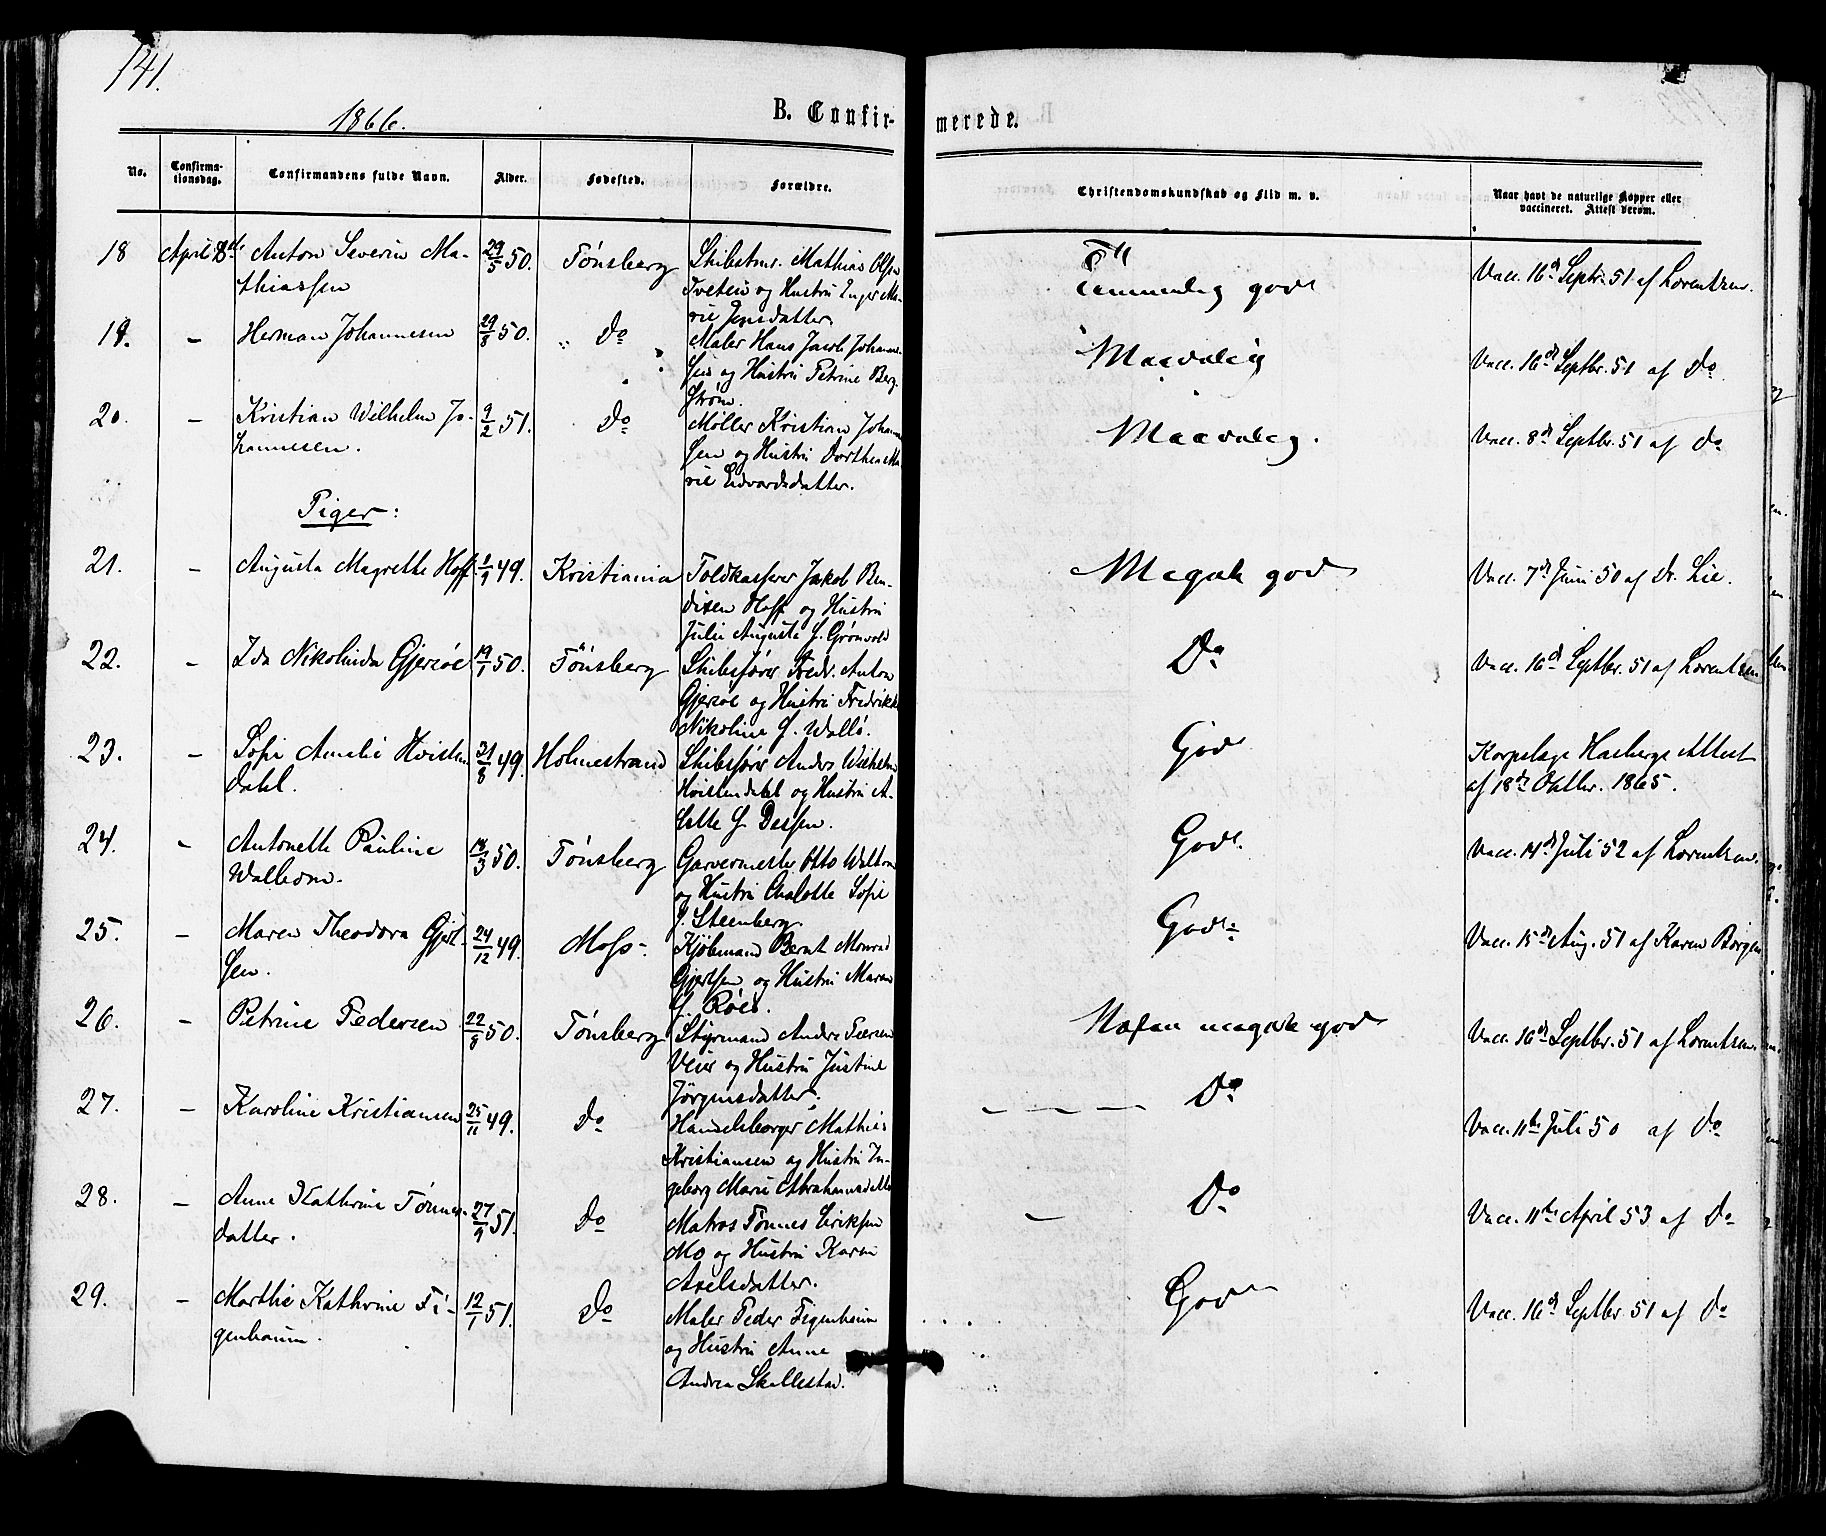 141.
1866.
B. Confirmerede.
No.
Confirmationsdag.
Confirmandens fulde Navn.
Alder.
Fødested.
Forældre.
Christendomskundskab og Flid m. v.
Naar havt de naturlige Kopper eller vaccineret. Attest derom.
18 April 8de Anton Severin Ma-
thiassen
29/5 50. Tønsberg
Skibstmr. Mathias Olsen
Tveten og Hustru Inger Ma-
rie Jensdatter.
Temmelig god
Vacc. 16de Septr. 51 af Lorentzen.
19. - Herman Johannesen
29/8 50. Do
Maler Hans Jacob Johanne-
sen og Hustru Petrine Berg-
strøm.
Maadelig
Vacc. 16de Septbr. 51 af Do
20. - Kristian Wilhelm Jo-
hannesen.
9/2 51. Do
Møller Kristian Johanne
sen og Hustru Dorthea Ma-
rie Edvardsdatter.
Maadelig.
Vacc. 8de Septbr. 51 af Do
Piger:
21. - Augusta Magrethe Hoff
49. Kristiania
Toldkasserer Jakob Ben-
dixen Hoff og Hustru
Julie Augusta f. Grønvold
Meget god
Vacc. 7de Juni 50 af Dr. Lie.
22. - Ida Nikolinda Gjersøe
19/1 50. Tønsberg
Skibsfører Fredr. Anton
Gjersøe og Hustru Fredrikke
Nikoline f. Walló.
Do
Vacc. 16de Septbr. 51 af Lorentzen
23. - Sofie Amalie Hvisten
dahl.
31/8 49. Holmestrand
Skibsfører Anders Wilhelm
Hvistendahl og Hustru A-
lette f. Dessen.
God
Korpslæge Hasbergs Attest
af 18de Oktbr. 1865.
24. - Antonette Pauline
Walbom.
18/3 50. Tønsberg
Garvermester Otto Walbom
og Hustru Chalotte Sofie
f. Steenberg.
God.
Vacc. 14de Juli 52 af Lorentzen.
25. - Maren Theodora Gjert-
sen.
24/12 49. Moss-
Kjøbmand Bernt Monrad
Gjertsen og Hustru Maren
f. Röed.
God
Vacc. 15de Aug. 51 af Karen Borgen
26. - Petrine Pedersen
22/8 50. Tønsberg
Styrmand Andr. Peersen
Veier og Hustru Justine
Jørgensdatter.
Næsten meget god
Vacc. 16de Septbr. 51 af Lorentzen.
27. - Karoline Kristiansen
25/11 49. Do
Handelsborger Mathias
Kristiansen og Hustru In-
geborg Marie Abrahamsdatter
- - - - Do
Vacc. 11te Juli 50 af Do
28. - Anne Kathrine Tønnes-
datter.
27/1 51. Do
Matros Tønnes Eriksen
Mo og Hustru Karen
Axelsdatter.
- Do
Vacc. 11te April 53 af Do
29. - Marthe Kathrine Fi-
genbaum.
12/1 51. Do
Maler Peder Figenbaum
og Hustru Anne
Andrea Skallestad.
God
Vacc. 16de Septbr. 51 af Do